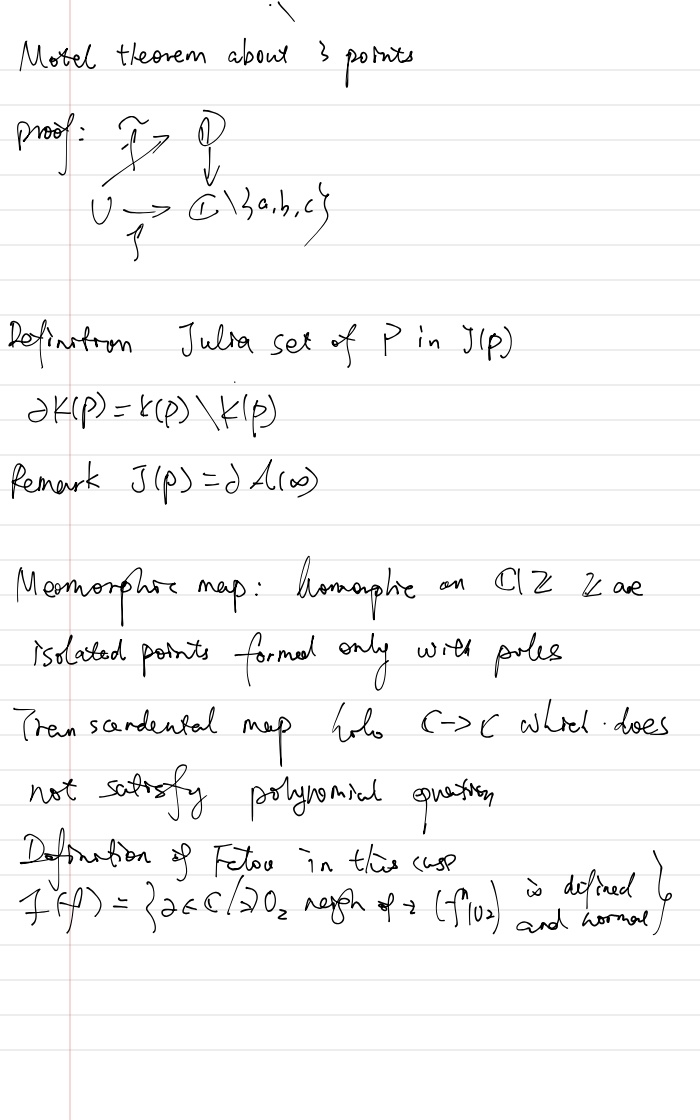 Motel theorem about 3 points
proof: f̃ D
U → ℂ\{a,b,c}
f
Definition Julia set of P in J(p)
∂K(p) = K(p) \ K̊(p)
Remark J(p) = ∂A(∞)
Meomorphic map: homorphic on ℂ\Z Z are
isolated points formed only with poles
Transcendental map holo ℂ->ℂ which does
not satisfy polynomial equation
Definition of Fatou in this case
F(f) = {z∈ℂ/∃U_z neigh of z (fⁿ|U_z) is defined and normal}